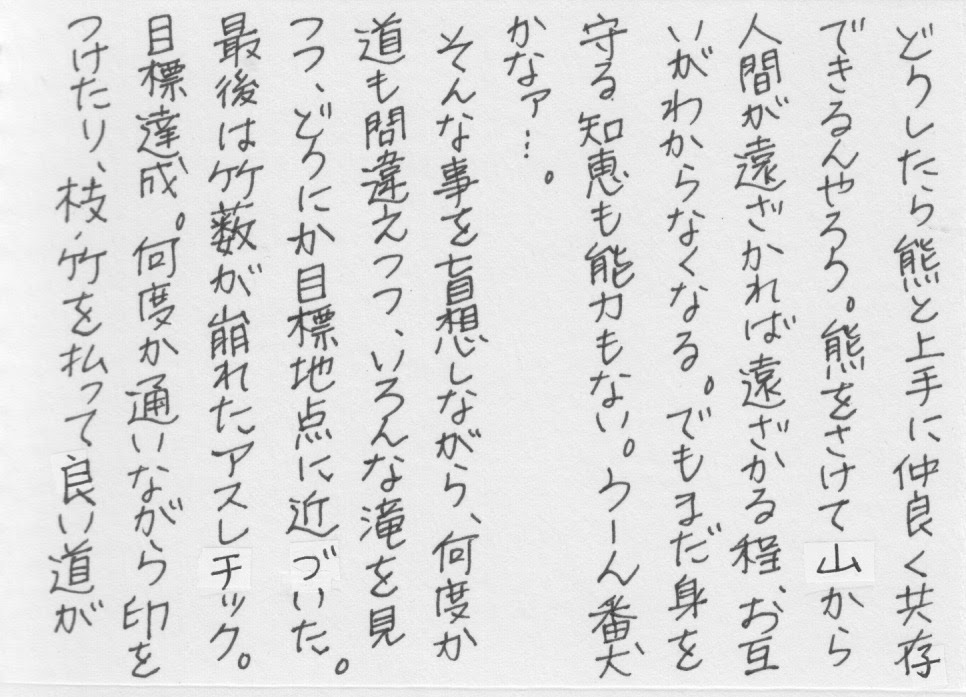 どうしたら熊と上手に仲良く共存
できるんやろう。熊をさけて山から
人間が遠ざかれば遠ざかる程、お互
いがわからなくなる。でもまだ身を
守る知恵も能力もない。うーん番犬
かなァ…。
そんな事を盲想しながら、何度か
道も間違えつつ、いろんな滝を見
つつ、どうにか目標地点に近づいた。
最後は竹薮が崩れたアスレチック。
目標達成。何度か通いながら印を
つけたり、枝・竹を払って良い道が